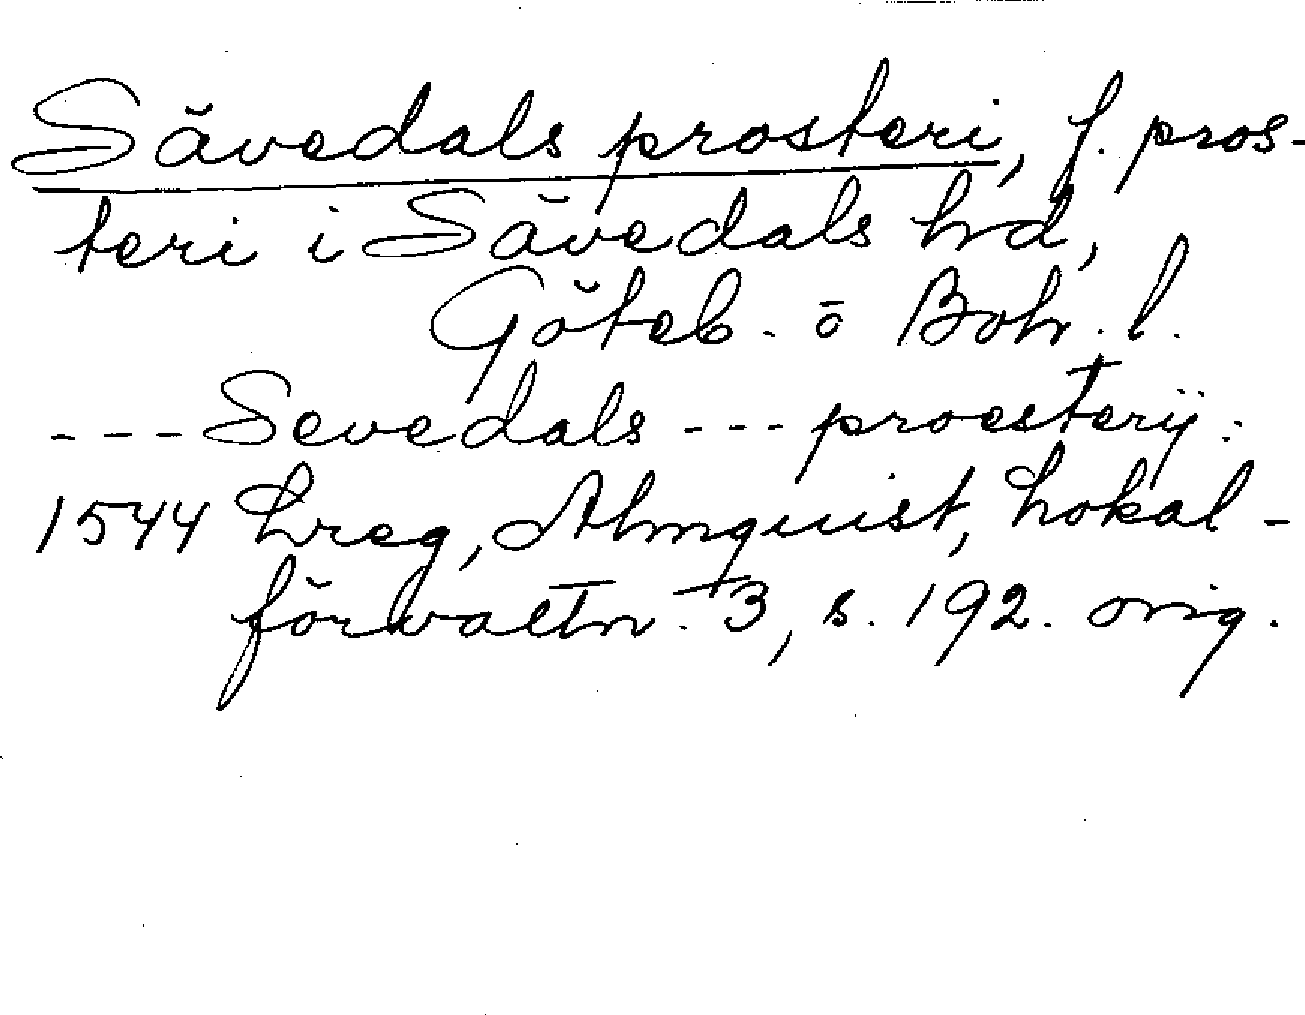 Sävedals prosteri, f. pros-
teri i Sävedals hd,
Göteb. o Boh. l.
--- Sevedals --- proesterij:
1544 Lreg, Almquist, Lokal-
förvaltn. 3, s. 192. orig.